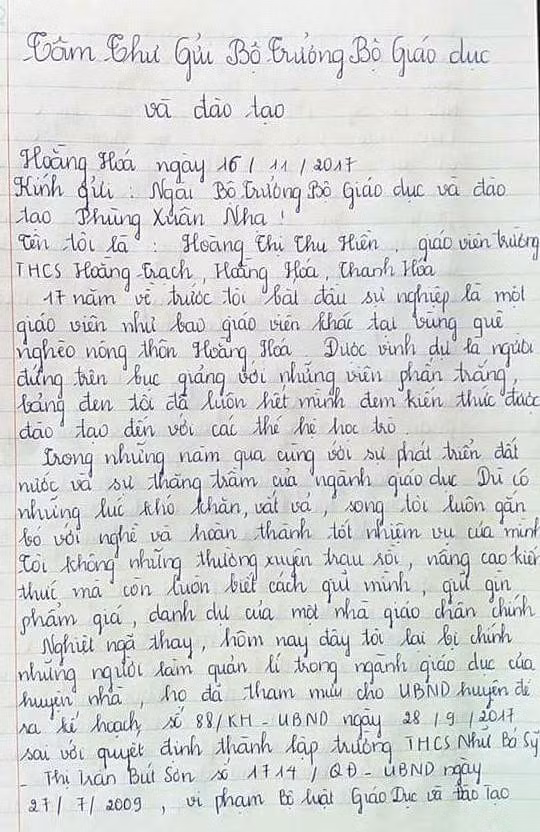 Tâm Thư Gửi Bộ Trưởng Bộ Giáo dục
và đào tạo
Hoằng Hoá ngày 16 / 11 / 2017
Kính gửi : Ngài Bộ trưởng Bộ Giáo dục và đào
tạo Phùng Xuân Nhạ !
Tên tôi là : Hoàng Thị Thu Hiền , giáo viên trường
THCS Hoằng Trạch , Hoằng Hóa , Thanh Hóa
17 năm về trước tôi bắt đầu sự nghiệp là một
giáo viên như bao giáo viên khác tại vùng quê
nghèo nông thôn Hoằng Hoá . Được vinh dự là người
đứng trên bục giảng với những viên phấn trắng ,
bảng đen tôi đã luôn hết mình đem kiến thức được
đào tạo đến với các thế hệ học trò .
Trong những năm qua cùng với sự phát triển đất
nước và sự thăng trầm của ngành giáo dục Dù có
những lúc khó khăn, vất vả , song tôi luôn gắn
bó với nghề và hoàn thành tốt nhiệm vụ của mình
Tôi không những thường xuyên trau rồi , nâng cao kiến
thức mà còn luôn biết cách giữ mình , giữ gìn
phẩm giá , danh dự của một nhà giáo chân chính
Nghiệt ngã thay , hôm nay đây tôi lại bị chính
những người làm quản lí trong ngành giáo dục của
huyện nhà , họ đã tham mưu cho UBND huyện đề
ra kế hoạch số 88/KH - UBND ngày 28 / 9 / 2017
sai với quyết định thành lập trường THCS Nhữ Bá Sỹ
- Thị trấn Bút Sơn số 1714 / QĐ - UBND ngày
27 / 7 / 2009 , vi phạm Bộ luật Giáo Dục và Đào Tạo